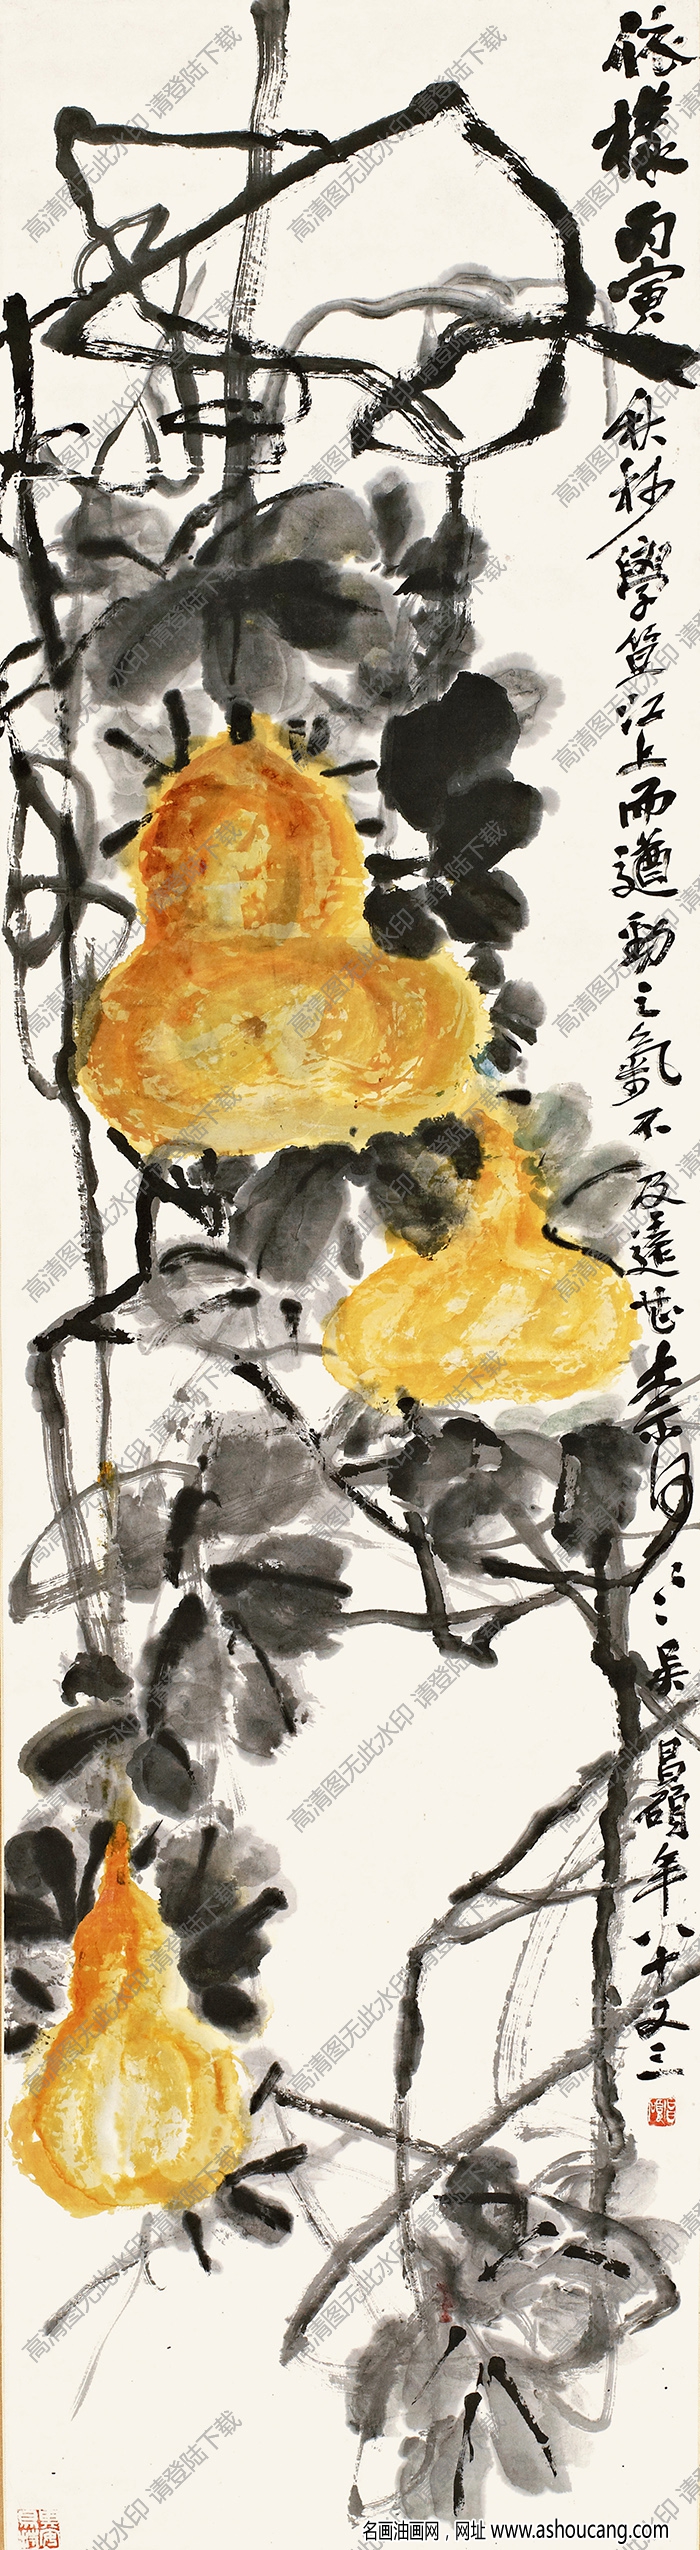 依樣丙寅秋杪學笪江上而遒勁之氣不及遠甚柰何二二吴昌碩年八十又三
高清图无此水印 请登陆下载
名画油画网，网址 www.ashoucang.com